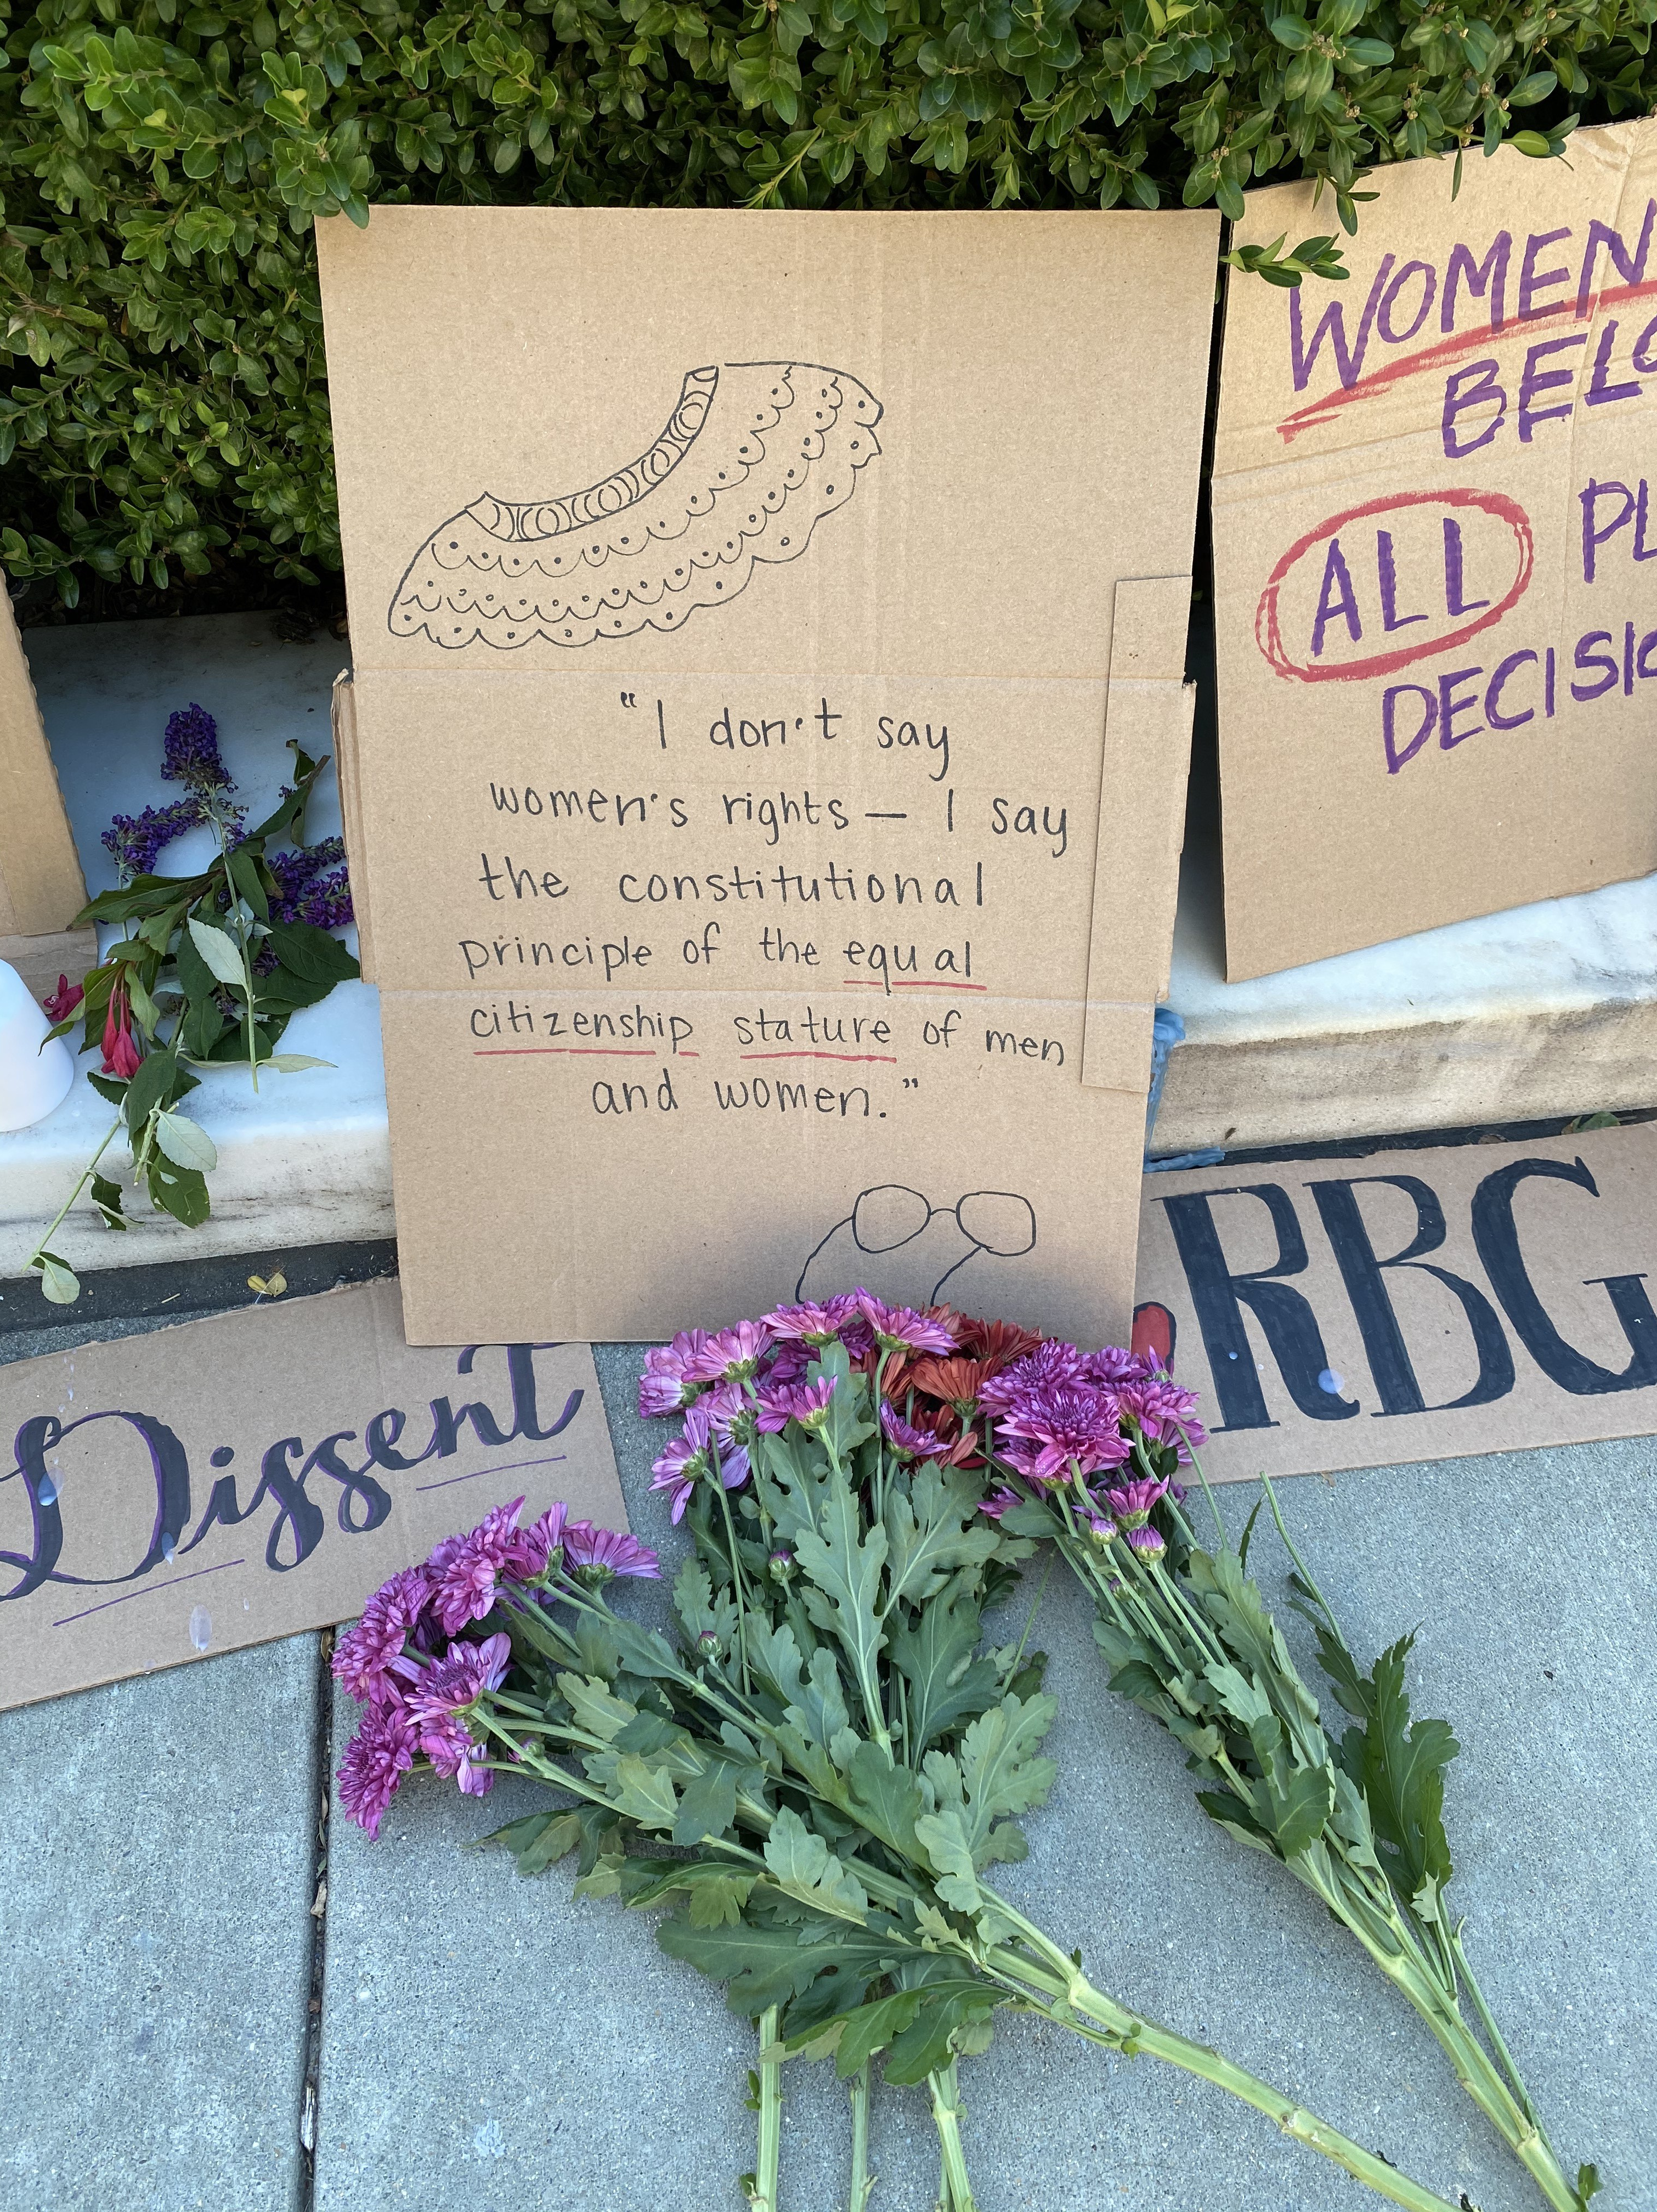 "I don't say
women's rights — I say
the constitutional
principle of the equal
citizenship stature of men
and women."
WOMEN
ALL
Dissent
RBG